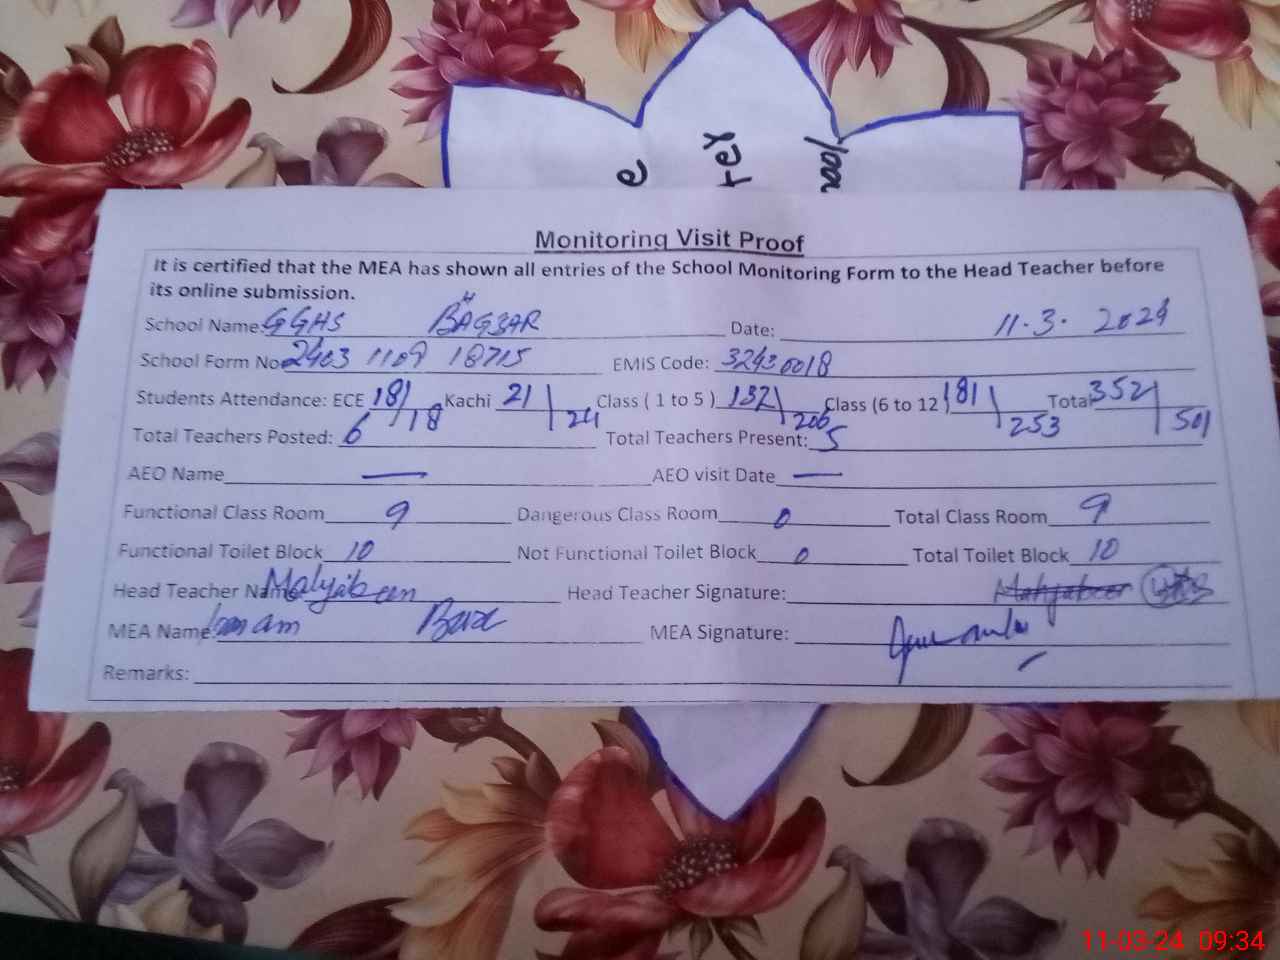 e
tey
Monitoring Visit Proof
It is certified that the MEA has shown all entries of the School Monitoring Form to the Head Teacher before
its online submission.
School Name: GGHS Date: 11.3.2024
School Form No 2403 1109 18715 EMIS Code: 32430018
Students Attendance: ECE 18/18 Kachi 21/24 Class ( 1 to 5 ) 132/206 Class (6 to 12 ) 181/253 Total 352/501
Total Teachers Posted: 6 Total Teachers Present: 5
AEO Name — AEO visit Date —
Functional Class Room 9 Dangerous Class Room 0 Total Class Room 9
Functional Toilet Block 10 Not Functional Toilet Block 0 Total Toilet Block 10
Head Teacher Name Mahjabeen Head Teacher Signature: Mahjabeen
MEA Name: MEA Signature:
Remarks:
11-03-24 09:34